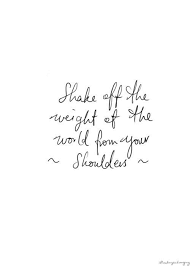 Shake off the
weight of the
world from your
~ Shoulders ~